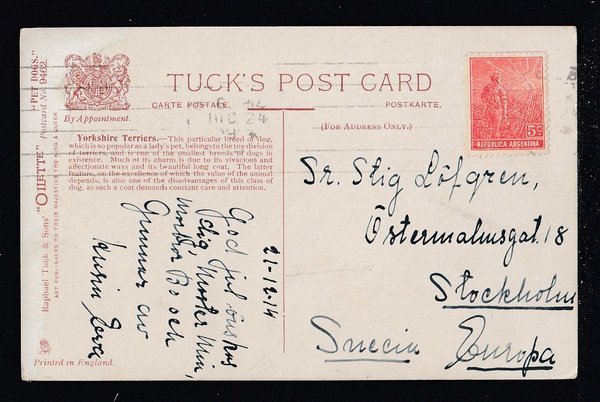 "PET DOGS."
"OILETTE" Postcard No. 9462.
Raphael Tuck & Sons'
ART PUBLISHERS TO THEIR MAJESTIES THE KING & QUEEN
By Appointment.
TUCK'S POST CARD
CARTE POSTALE.
POSTKARTE.
(FOR ADDRESS ONLY.)
Yorkshire Terriers.—This particular breed of dog,
which is so popular as a lady's pet, belongs to the toy division
of terriers, and is one of the smallest breeds of dogs in
existence. Much of its charm is due to its vivacious and
affectionate ways and its beautiful long coat. The latter
feature, on the excellence of which the value of the animal
depends, is also one of the disadvantages of this class of
dog, as such a coat demands constant care and attention.
5c
REPUBLICA ARGENTINA
Sr. Stig Löfgren,
Östermalmsgat. 18
Stockholm
Suecia Europa
21-12-14
God jul önskas
dig, Moster Mim,
morbror Bo och
Gunnar av
kusin
Printed in England.